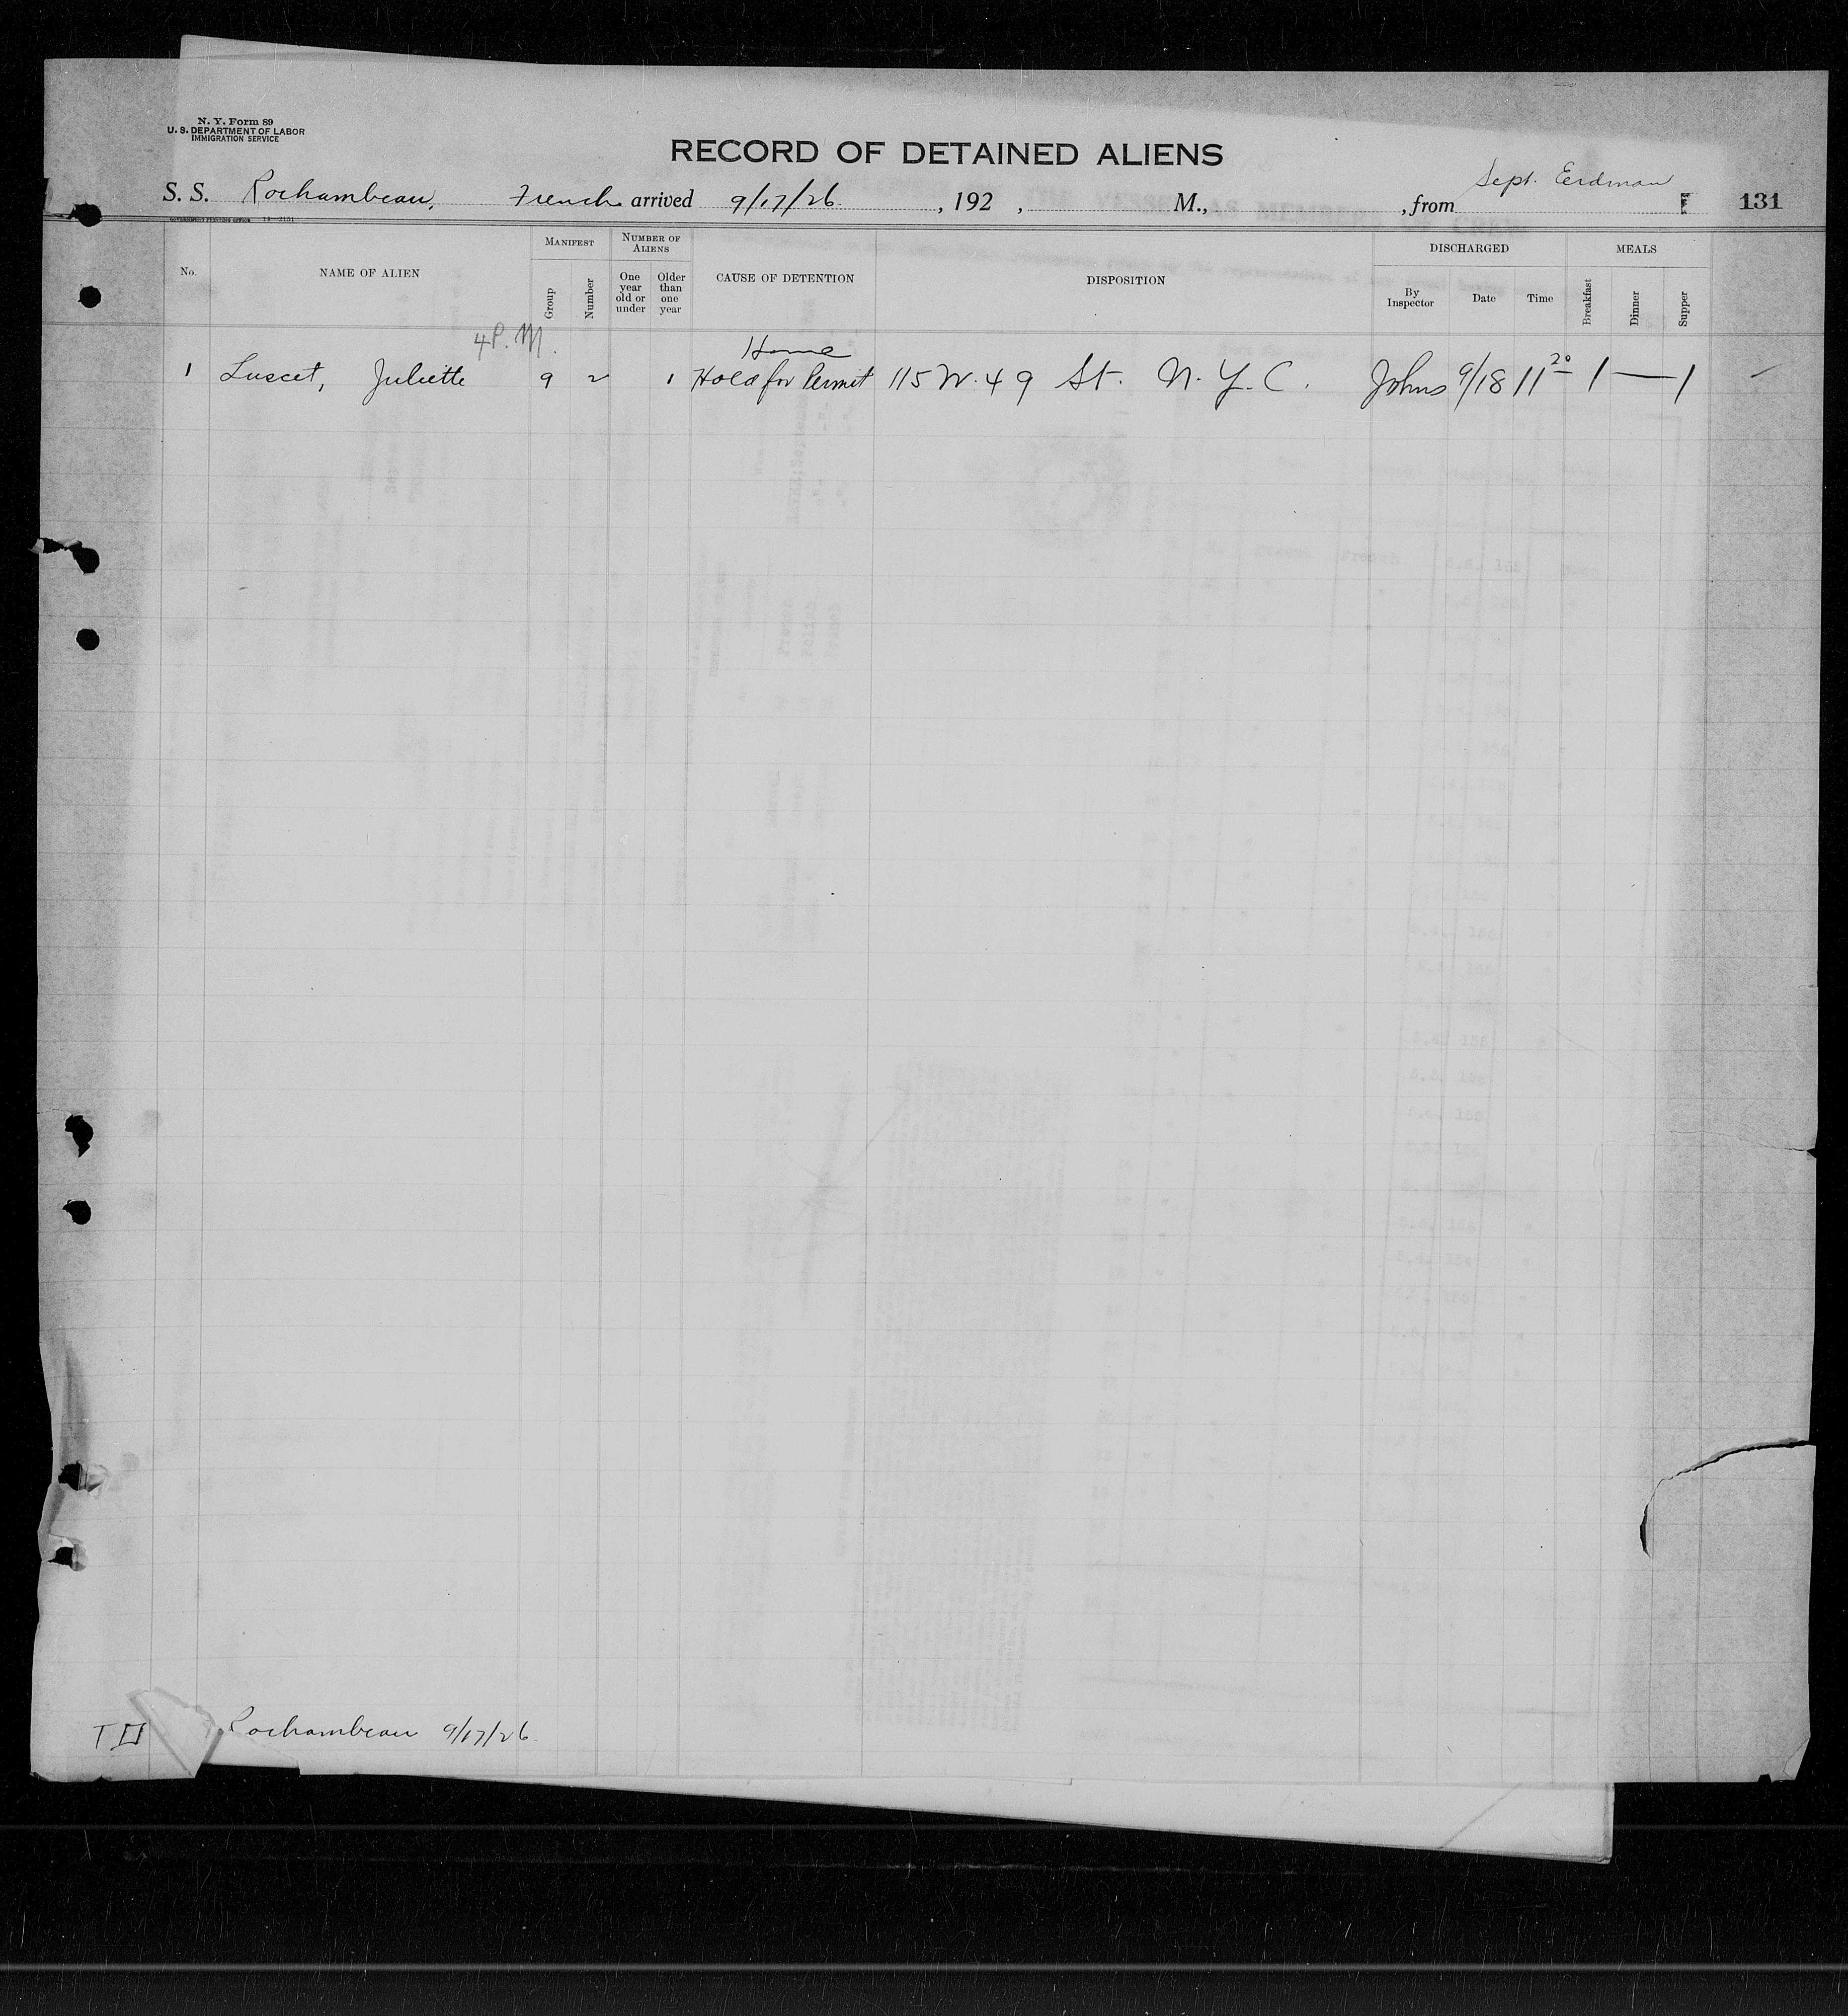 N. Y. Form 89
U. S. DEPARTMENT OF LABOR
IMMIGRATION SERVICE
RECORD OF DETAINED ALIENS
S. S. Rochambeau, French arrived 9/17/26, 192 , M., , from Sept. Eerdman 131
MANIFEST NUMBER OF ALIENS DISCHARGED MEALS
No. NAME OF ALIEN Group Number One year old or under Older than one year CAUSE OF DETENTION DISPOSITION By Inspector Date Time Breakfast Dinner Supper
4 P. M. Home
1 Luscet, Juliette 9 2 1 Hold for Permit 115 W. 49 St. N. Y. C. Johns 9/18 11 20 1 — 1
Rochambeau 9/17/26